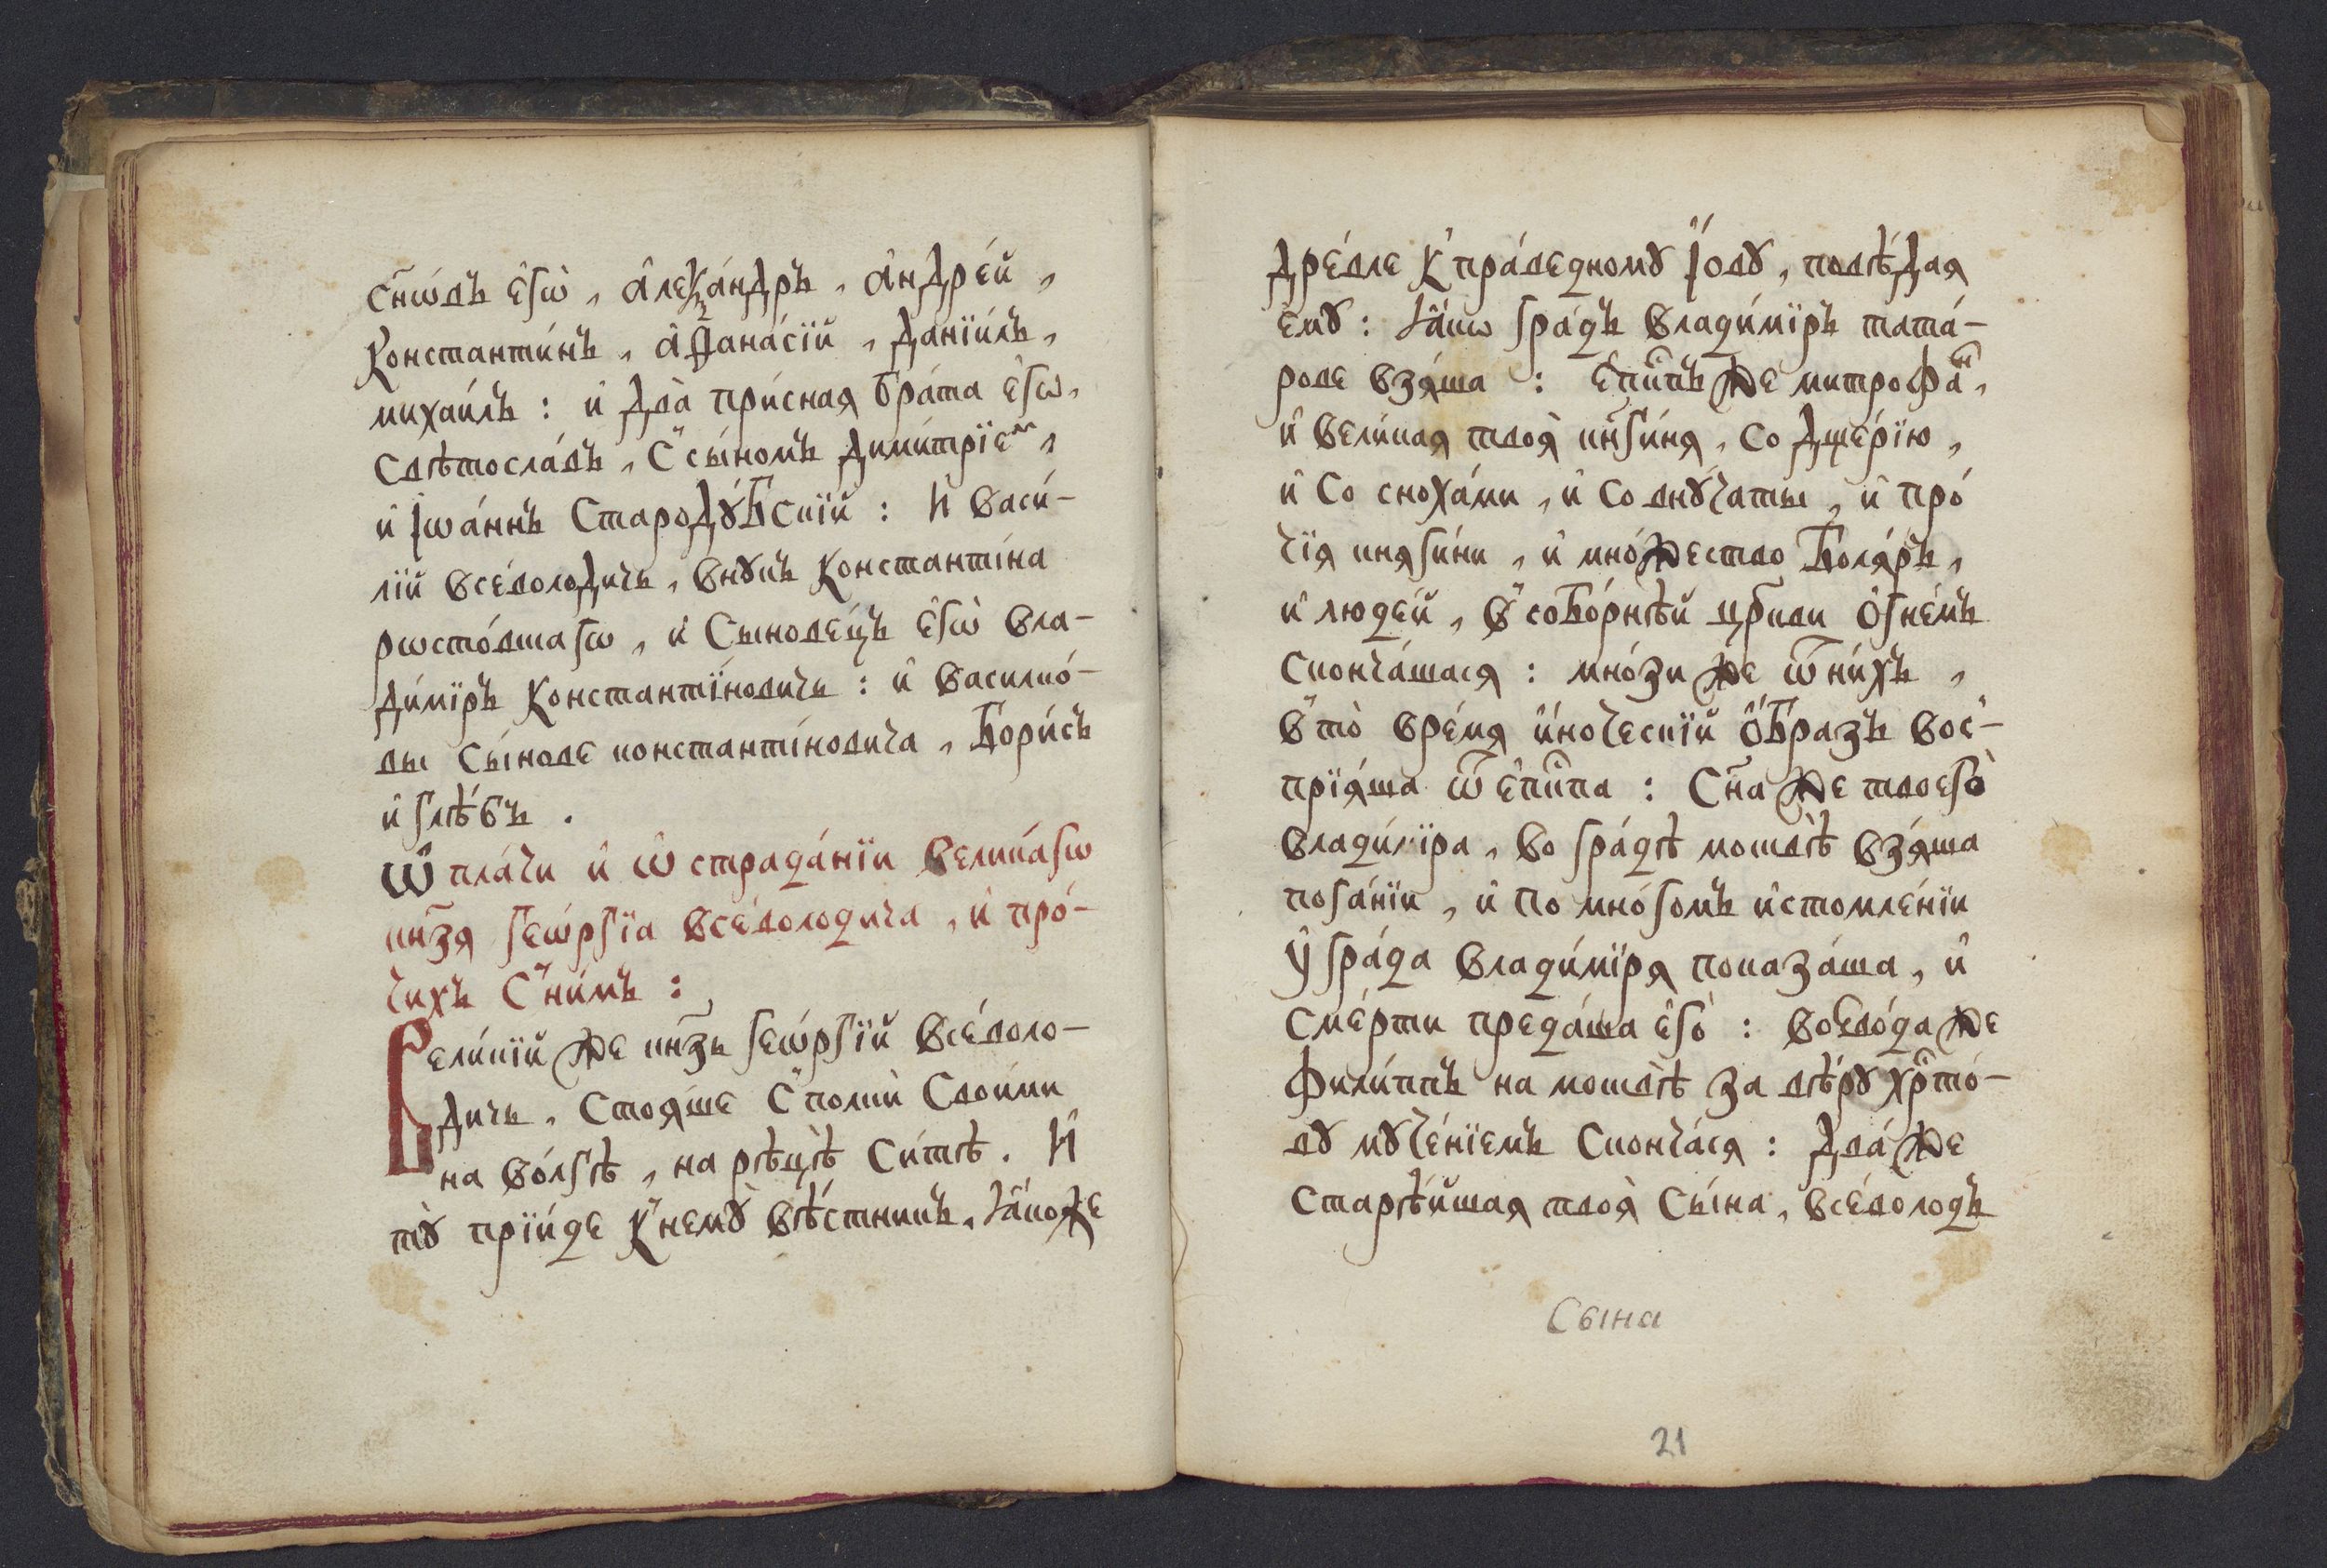 сн҃ѡ́въ є҆гѡ̀, а҆леѯа́ндръ, а҆ндре́й,
Константи́нъ, а҆ѳана́сїй, Данїи́лъ,
михаи́лъ : и҆ два̀ при́сная бра́та є҆гѡ̀,
Свѣтосла́въ, с̾сы́номъ Дими́трїемъ,
и҆ І҆ѡа́ннъ Стародꙋ́бскїй : И҆ Васи́-
лїй Все́володичь, внꙋкъ Константі́на
рѡсто́вшагѡ, и҆ Сынове́цъ є҆гѡ̀ Вла-
ди́мїръ Константї́новичь : и҆ Василко́-
вы Сы́нове константі́новича, Бори́съ
и҆ глѣ́бъ .
Ѡ҆ пла́чи и҆ ѡ҆ страда́нїи Вели́кагѡ
кн҃зя геѡ́ргїа Все́володича, и҆ про́-
чихъ с̾ни́мъ :
Вели́кїй же кн҃зь геѡ́ргїй Все́воло-
дичь, Стоя́ше с̾полки̂ Свои́ми
на Во́лгѣ, на рѣцѣ̀ Си́тѣ . И҆
тꙋ̀ прїи́де к̾немꙋ̀ вѣ́стникъ, ꙗ҆́коже
Дре́вле к̾пра́ведномꙋ І҆́овꙋ, повѣ́дая
емꙋ̀ : ꙗ҆́кѡ гра́дъ Влади́мїръ тата́-
рове взя́ша : Е҆пⷭ҇пъ же митрофа́нъ,
и҆ вели́кая твоя̀ кн҃ги́ня, со дще́рїю,
и҆ со сноха́ми, и҆ со внꙋ́чаты, и҆ про́
чїя княги́ни, и҆ мно́жество Боля́ръ,
и҆ люде́й, в̾собо́рнѣй цр҃кви Ѻ҆гне́мъ
сконча́шася : мно́зи же ѿ ни́хъ,
в̾то̀ вре́мя и҆́ноческїй ѻ҆́бразъ вос̾-
прїя́ша ѿ є҆пⷭ҇па : Сн҃а же твоего̀
Влади́мїра, во гра́дѣ мошвѣ̀ взя́ша
пога́нїи, и҆ по мно́гомъ и҆стомле́нїи
ᲂу҆ гра́да Влади́мїря показа́ша, и҆
сме́рти преда́ша є҆го̀ : Воево́да же
Фили́ппъ на мошвѣ̀ за вѣ́рꙋ хрⷭ҇то́-
вꙋ мꙋче́нїемъ Сконча́ся : Два́ же
старѣ́йшая твоя̀ Сы́на, Все́володъ
Сына
21